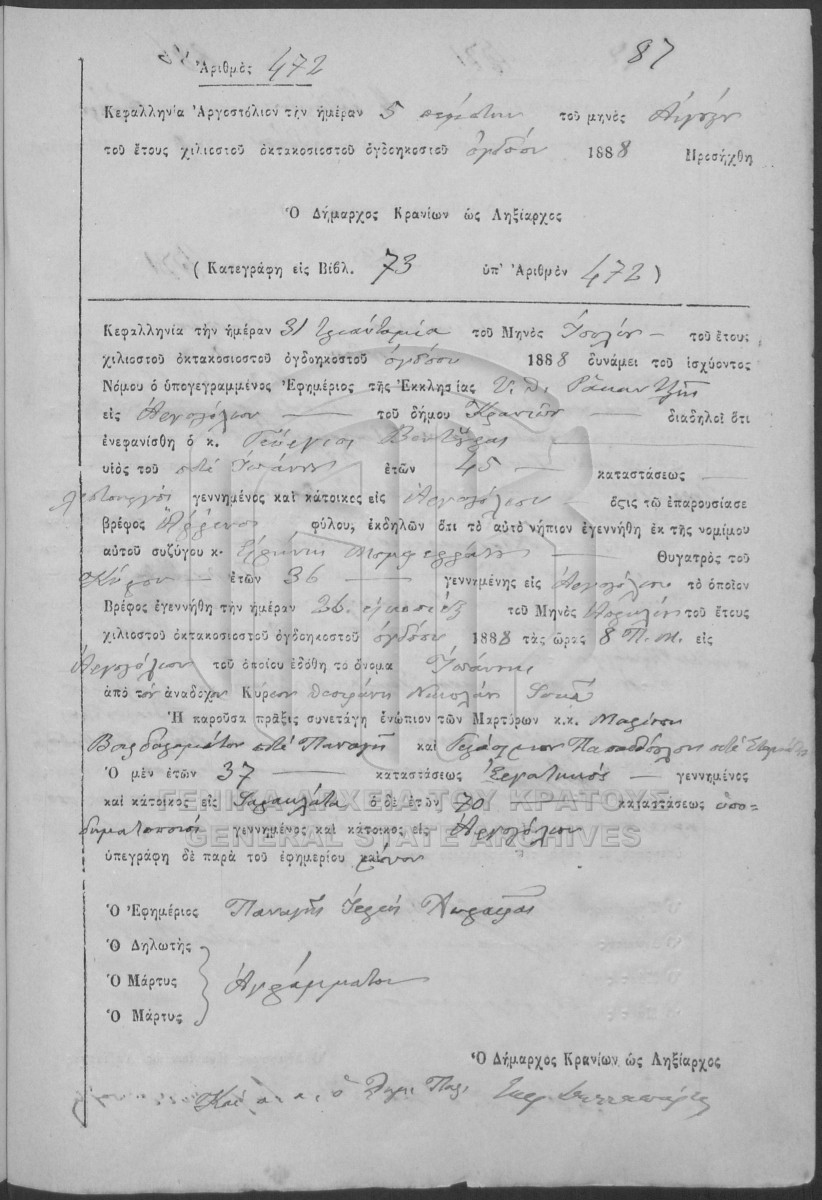 87
Ἀριθμὸς 472
Κεφαλληνία Ἀργοστόλιον τὴν ἡμέραν 5 πέμπτην τοῦ μηνὸς
τοῦ ἔτους χιλιοστοῦ ὀκτακοσιοστοῦ ὀγδοηκοστοῦ ὀγδόου 1888 Προσήχθη
Ὁ Δήμαρχος Κρανίων ὡς Ληξίαρχος
(Κατεγράφη εἰς Βιβλ. 73 ὑπ' Ἀριθμὸν 472)
Κεφαλληνία τὴν ἡμέραν 31 τριάντα μία τοῦ Μηνὸς Ἰουλίου τοῦ ἔτους
χιλιοστοῦ ὀκτακοσιοστοῦ ὀγδοηκοστοῦ ὀγδόου 1888 δυνάμει τοῦ ἰσχύοντος
Νόμου ὁ ὑπογεγραμμένος Ἐφημέριος τῆς Ἐκκλησίας
εἰς Ἀργοστόλιον τοῦ δήμου Κρανίων διαδηλοῖ ὅτι
ἐνεφανίσθη ὁ κ. Γεώργιος
υἱὸς τοῦ ποτὲ Ἰωάννη ἐτῶν 45 καταστάσεως
λειτουργὸς γεννημένος καὶ κάτοικος εἰς Ἀργοστόλιον ὅςτις τῷ ἐπαρουσίασε
βρέφος Ἄρρενος φύλου, ἐκδηλῶν ὅτι τὸ αὐτὸ νήπιον ἐγεννήθη ἐκ τῆς νομίμου
αὐτοῦ συζύγου κ. Εἰρήνης Θυγατρὸς τοῦ
Κύρου ἐτῶν 36 γεννημένης εἰς Ἀργοστόλιον τὸ ὁποῖον
Βρέφος ἐγεννήθη τὴν ἡμέραν 26 εἴκοσι ἓξ τοῦ Μηνὸς Ἀπριλίου τοῦ ἔτους
χιλιοστοῦ ὀκτακοσιοστοῦ ὀγδοηκοστοῦ ὀγδόου 1888 τὰς ὥρας 8 Π.Μ. εἰς
Ἀργοστόλιον τοῦ ὁποίου ἐδόθη τὸ ὄνομα Ἰωάννης
ἀπὸ τὸν ἀνάδοχον Κύριον Νικολάου
Ἡ παροῦσα πρᾶξις συνετάγη ἐνώπιον τῶν Μαρτύρων κ.κ. Μαρίνου
ποτὲ Παναγῆ καὶ Γεράσιμον Παπαδόπουλον ποτὲ
Ὁ μὲν ἐτῶν 37 καταστάσεως Ἐργατικὸς γεννημένος
καὶ κάτοικος εἰς Φαρακλάτα ὁ δὲ ἐτῶν 70 καταστάσεως ὑπο-
δηματοποιὸς γεννημένος καὶ κάτοικος εἰς Ἀργοστόλιον
ὑπεγράφη δὲ παρὰ τοῦ ἐφημερίου μόνον
ΓΕΝΙΚΑ ΑΡΧΕΙΑ ΤΟΥ ΚΡΑΤΟΥΣ
GENERAL STATE ARCHIVES
Ὁ Ἐφημέριος Παναγῆς Ἱερεὺς
Ὁ Δηλωτὴς
Ὁ Μάρτυς Ἀγράμματοι
Ὁ Μάρτυς
Ὁ Δήμαρχος Κρανίων ὡς Ληξίαρχος